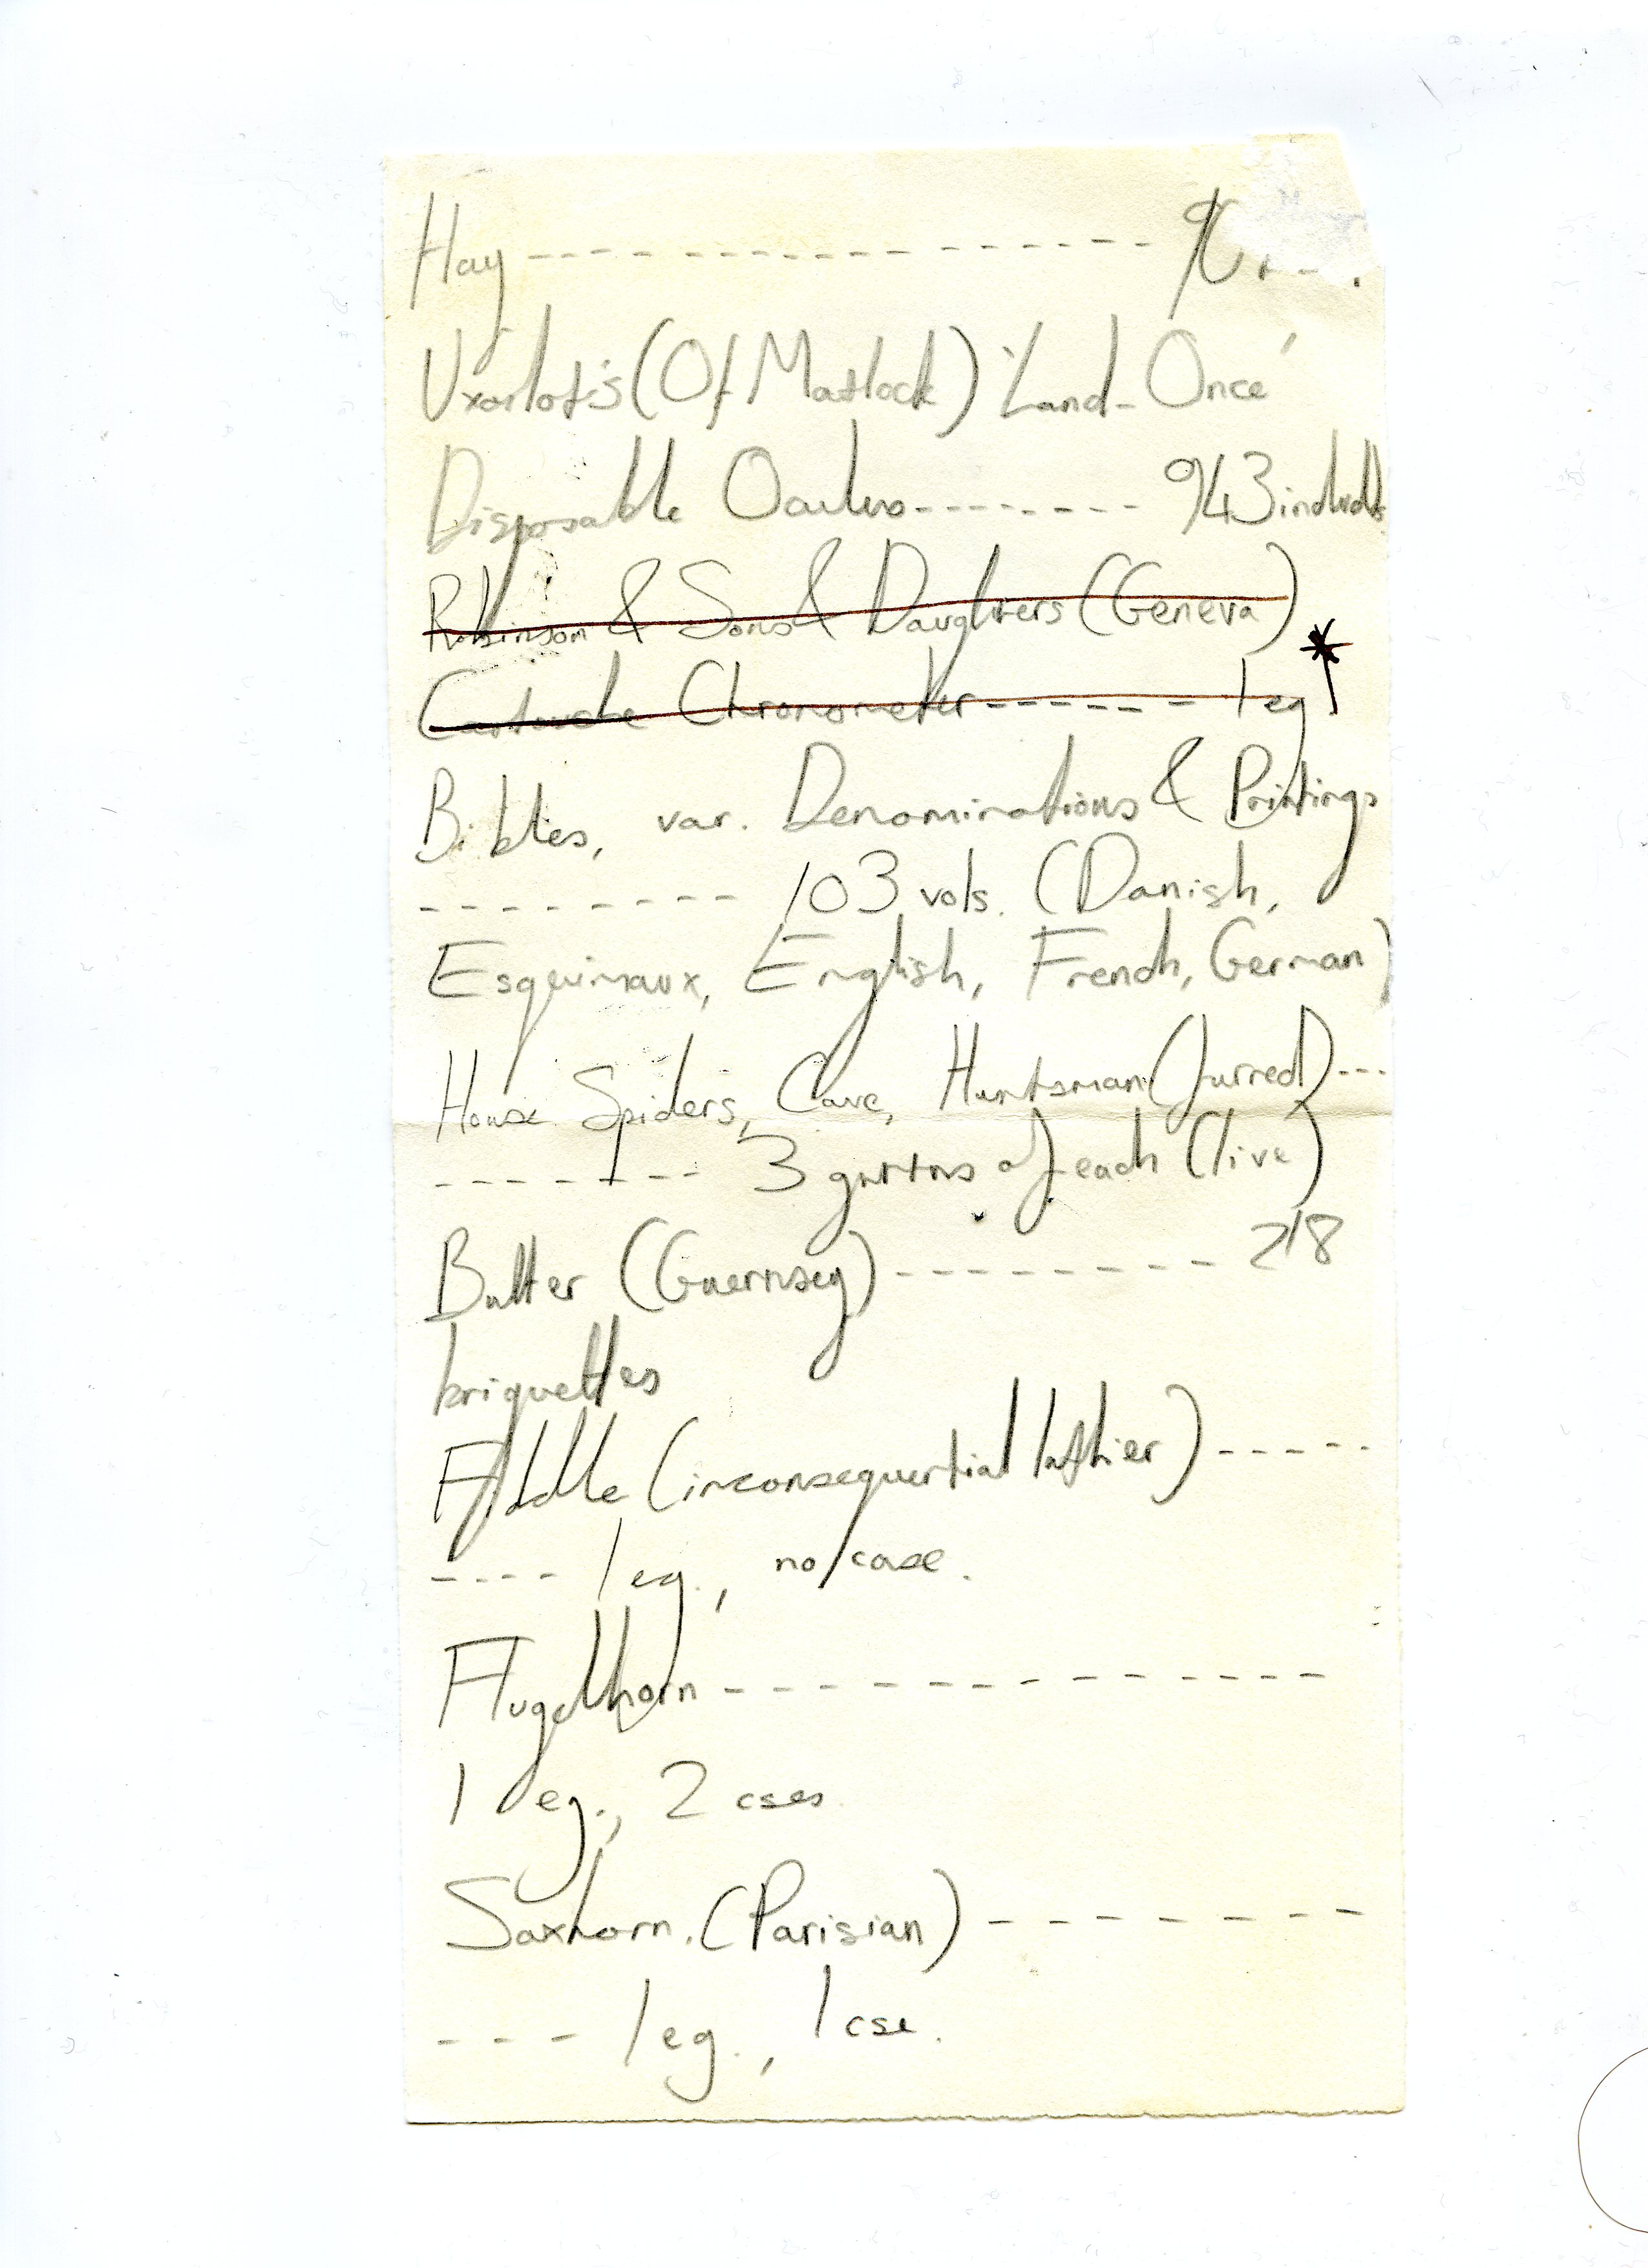 Hay - - - - - - - - - - - - - - - - 9
Uxorlot's (Of Matlock) 'Land-Once'
Disposable - - - - - - - - 943 individs
Robinson & Sons & Daughters (Geneva)
Cartouche Chronometer - - - - - - 1 eg. *
Bibles, var. Denominations & Printings
- - - - - - - - - 103 vols. (Danish,
Esquimaux, English, French, German)
House Spiders, Cave, Huntsman (furred) - - -
- - - - - - - - 3 of each (live)
Butter (Guernsey) - - - - - - - - - 218
briquettes
Fiddle (inconsequential luthier) - - - - -
- - - - 1 eg., no case.
Flugelhorn - - - - - - - - - - - - - -
1 eg., 2 cses
Saxhorn. (Parisian) - - - - - - - -
- - - 1 eg., 1 cse.